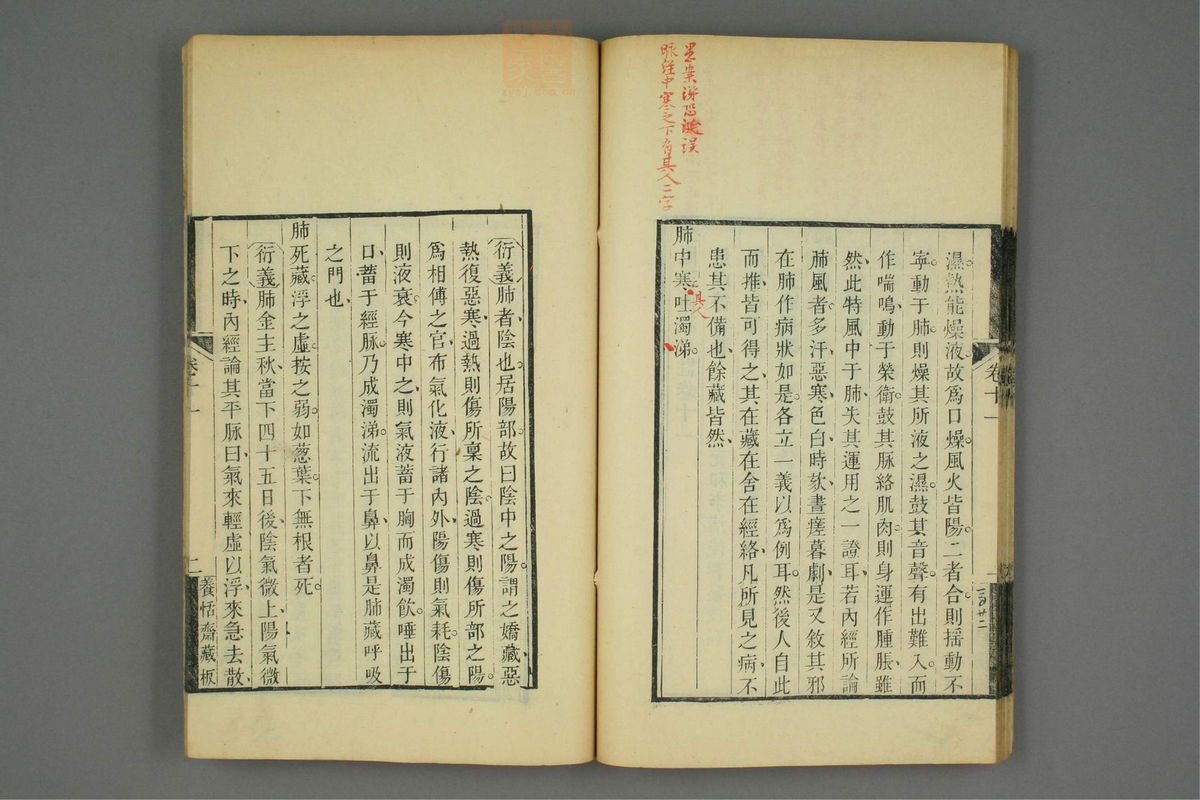 愚案涕恐唾誤
脈經中寒之下有其人二字
濕熱能燥液故爲口燥風火皆陽二者合則揺動不
寧動于肺則燥其所液之濕鼓其音聲有出難入而
作喘鳴動于榮衛鼓其脉絡肌肉則身運作腫脹雖
然此特風中于肺失其運用之一證耳若內經所論
肺風者多汗惡寒色白時欬晝瘥暮劇是又敘其邪
在肺作病狀如是各立一義以爲例耳然後人自此
而推皆可得之其在藏在舍在經絡凡所見之病不
患其不備也餘藏皆然
肺中寒吐濁涕
其人
卷十一
衍義肺者陰也居陽部故曰陰中之陽謂之嬌藏惡
熱復惡寒過熱則傷所稟之陰過寒則傷所部之陽
爲相傅之官布氣化液行諸內外陽傷則氣耗陰傷
則液衰今寒中之則氣液蓄于胸而成濁飲唾出于
口蓄于經脉乃成濁涕流出于鼻以鼻是肺藏呼吸
之門也
肺死藏浮之虛按之弱如葱葉下無根者死
衍義肺金主秋當下四十五日後陰氣微上陽氣微
下之時內經論其平脉曰氣來輕虛以浮來急去散
卷十一
二
養恬齋藏板